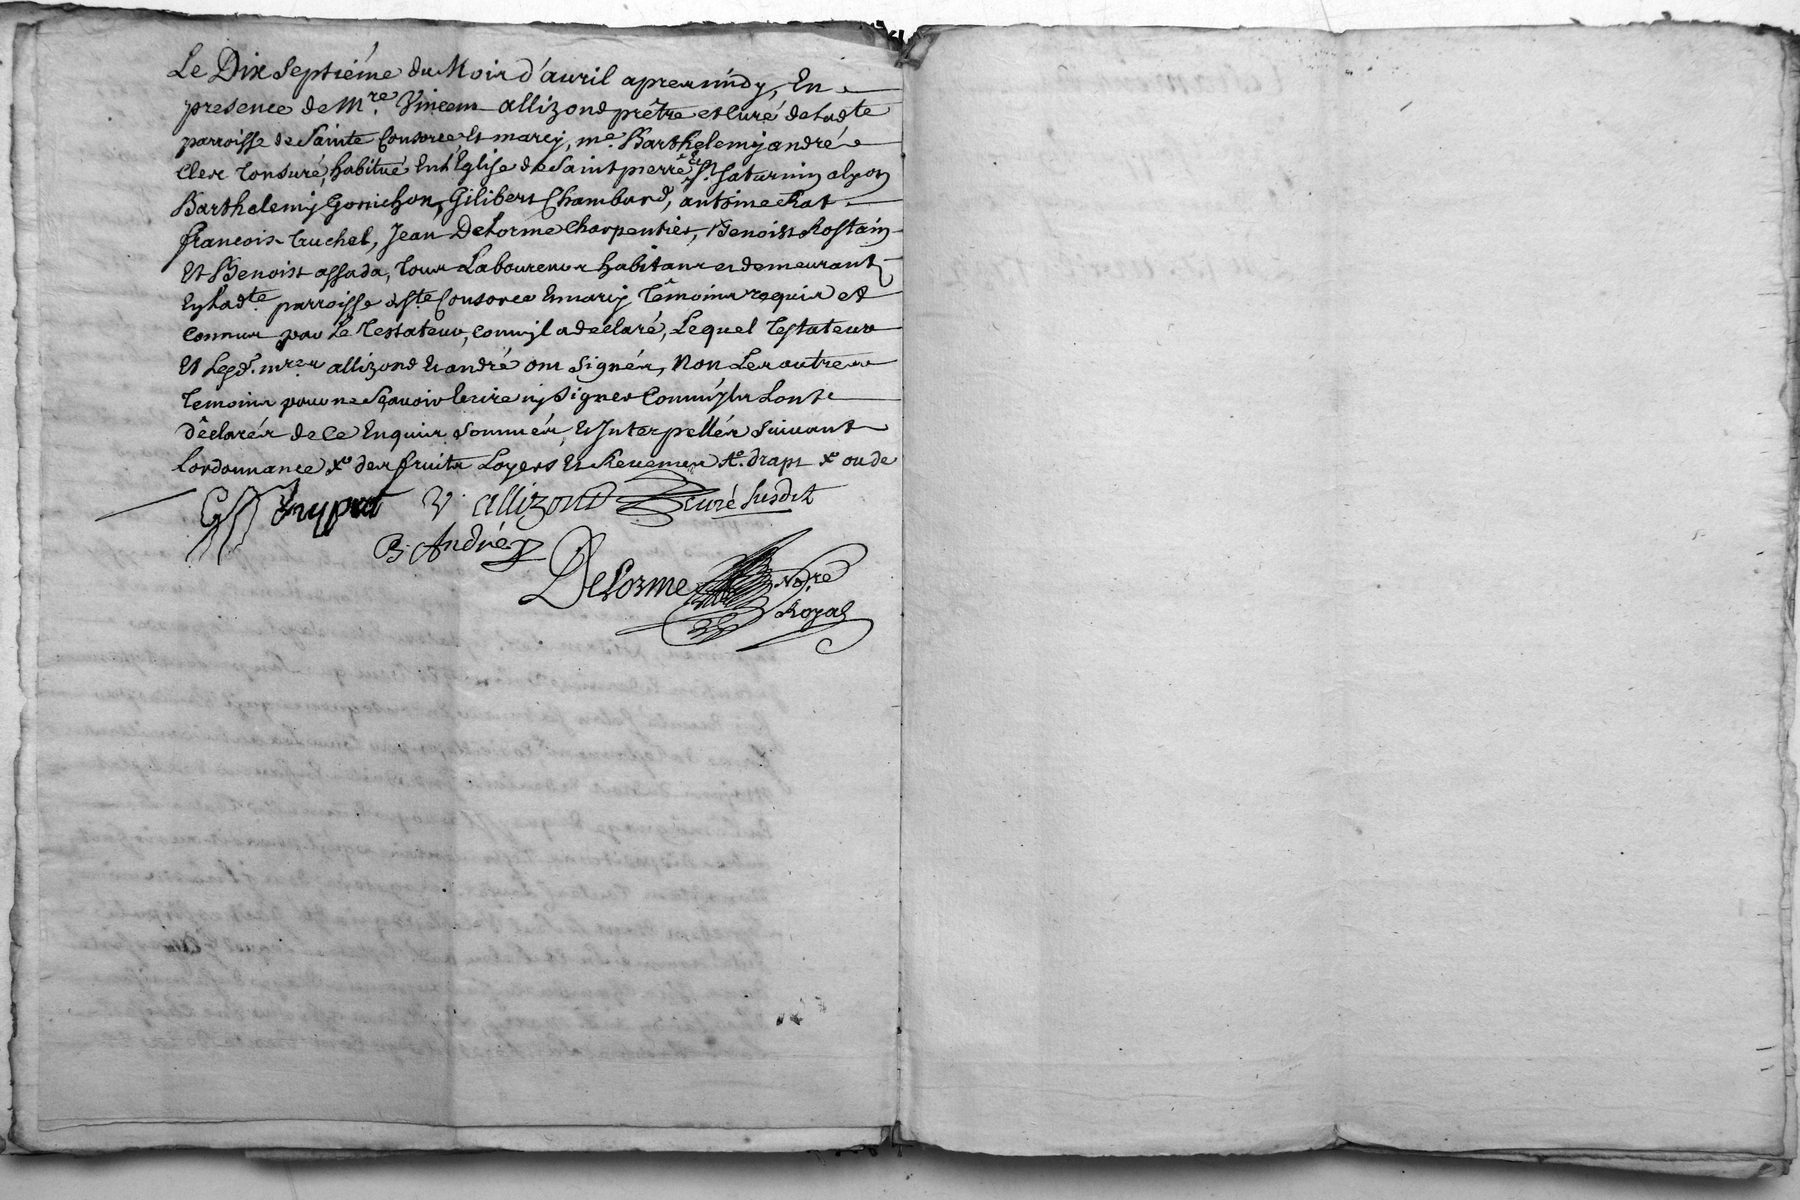 Le Dix Septiéme du Mois d'auril apres midy, En
presence de Mre. Vincent allizond prêtre et Curé de Ladte
parroisse de Sainte Consorce Et marcy, me. Barthelemy andré
Clerc Tonsuré, habitué En L'Eglise de Saint pierre Et St. Saturnin a Lyon
Barthelemy Gonichon, Gilibert Chambard, antoine Rat
francois Truchet, Jean DeLorme Charpentier, Benoist Rostain
Et Benoist assada, Tous Laboureurs habitans et demeurants
En Ladte. parroisse de Ste Consorce Et marcy Têmoins requis et
Connus par Le Testateur, Comm'jl a declaré, Lequel Testateur
Et Lesds. mres allizond Et andré ont Signés, Non Les autres
Temoins pour ne Sçauoir Ecrire ny Signer Comm'jls L'ont
dêclarés de Ce Enquis Sommés, Et Interpellés Suiuant
L'ordonnance Xo des fruits Loyers Et Reuenus Xo. drapt Xo ou de
V. allizond curé Susdit
B. André
DeLorme Nore
Royal